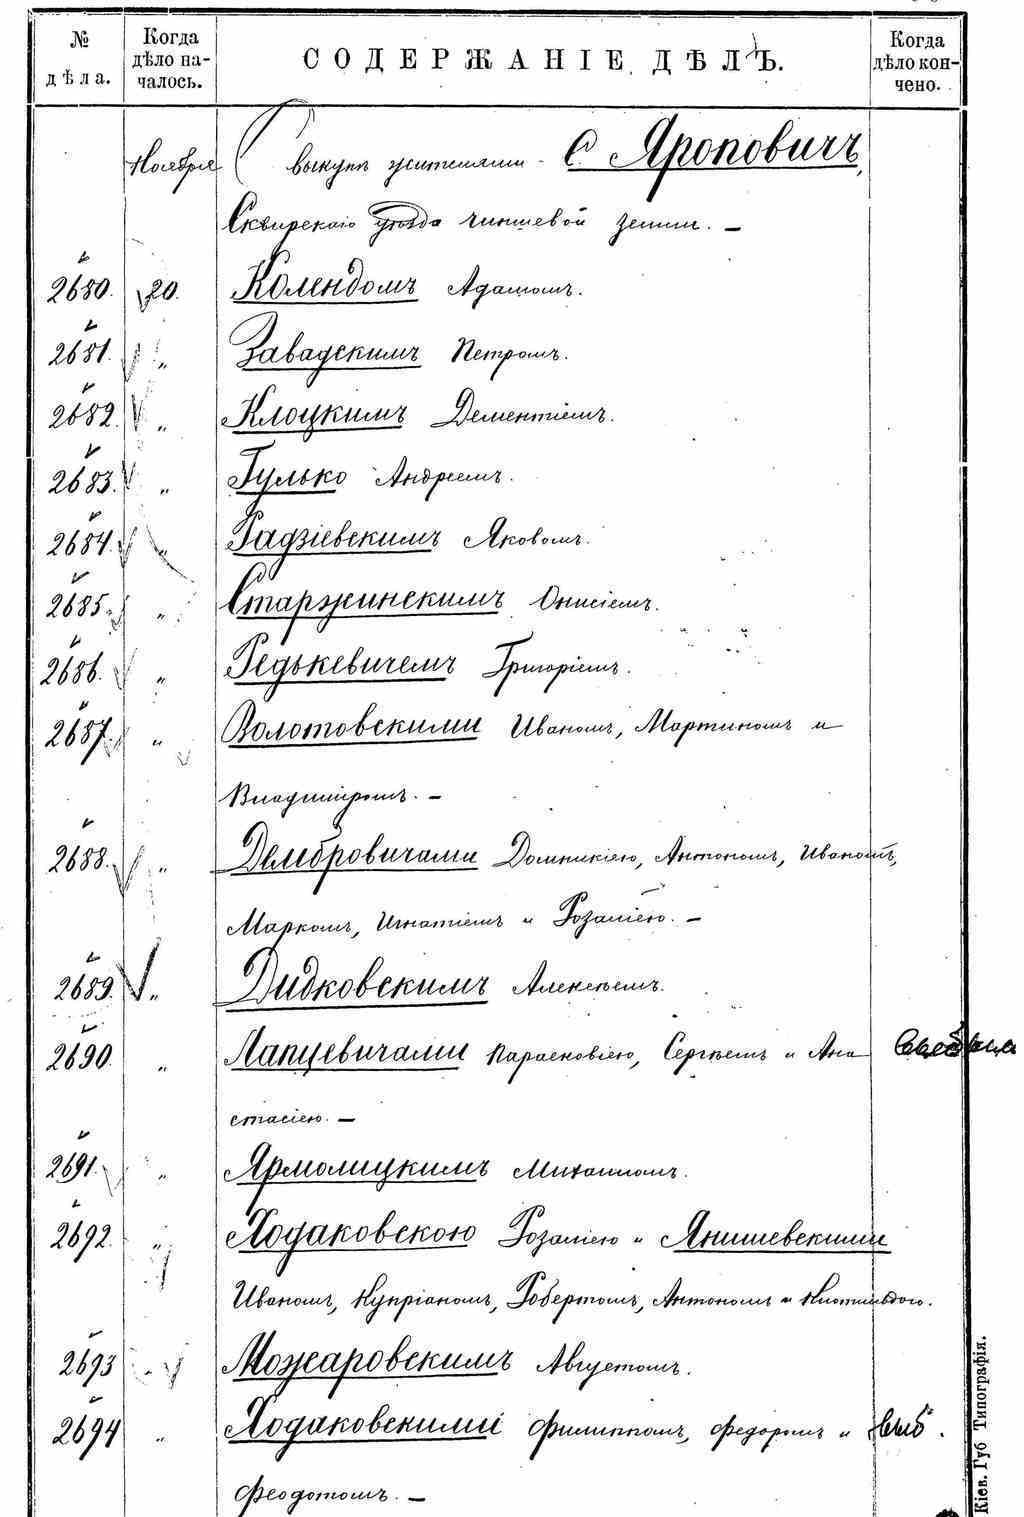 № дѣла.
Когда дѣло началось.
СОДЕРЖАНІЕ ДѢЛЪ.
Когда дѣло кончено.
Ноября
выкупъ жителями - С. Яроповичъ,
Сквирскаго уѣзда чиншевой земли. —
2680. 20. Колендомъ Адамомъ.
2681. „ Завадскимъ Петромъ.
2682. „ Клоцкимъ Дементіемъ.
2683. „ Гулько Андреемъ.
2684. „ Радзіевскимъ Яковомъ.
2685. „ Старжинскимъ Онисіемъ.
2686. „ Редькевичемъ Григоріемъ.
2687. „ Волотовскими Иваномъ, Мартиномъ и
Владиміромъ. —
2688. „ Дембровичами Домникіею, Антономъ, Иваномъ,
Маркомъ, Игнатіемъ и Розаліею. —
2689. „ Дидковскимъ Алексѣемъ.
2690. „ Лапцевичами Парасковіею, Сергѣемъ и Ана
стасіею. —
2691. „ Ярмолицкимъ Михаиломъ.
2692. „ Ходаковскою Розаліею и Янишевскими
Иваномъ, Купріаномъ, Робертомъ, Антономъ и
2693 „ Можаровскимъ Августомъ.
2694 „ Ходаковскими Филиппомъ, Федоромъ и
Феодотомъ. —
Кіев. Губ Типографія.